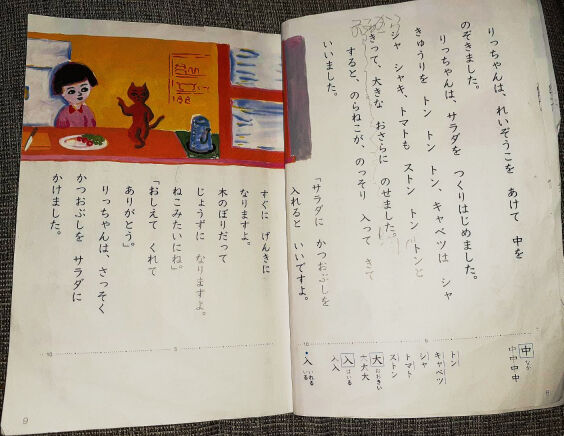 りっちゃんは、れいぞうこを あけて 中を
のぞきました。
りっちゃんは、サラダを つくりはじめました。
きゅうりを トン トン トン、キャベツは シャ
シャ シャキ、トマトも ストン トン トンと
きって、大きな おさらに のせました。
すると、のらねこが、のっそり 入って きて
いいました。
「サラダに かつおぶしを
入れると いいですよ。
すぐに げんきに
なりますよ。
木のぼりだって
じょうずに なりますよ。
ねこみたいにね。」
「おしえて くれて
ありがとう。」
りっちゃんは、さっそく
かつおぶしを サラダに
かけました。
中 なか
中中中中
トン
キャベツ
シャ
トマト
ストン
大 おおきい
一ナ大
入 はいる
ノ入
入 いれる
いる
10
5
10
5
8
9